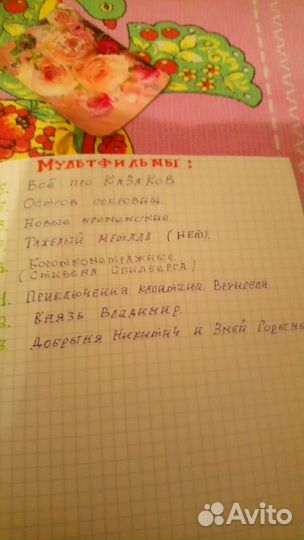 МУЛЬТФИЛЬМЫ:
ВСЁ ПРО КАЗАКОВ
ОСТРОВ СОКРОВИЩ.
НОВЫЕ БРЕМЕНСКИЕ.
ТЯЖЕЛЫЙ МЕТАЛЛ (НЕТ).
КОРОТКОМЕТРАЖНЫЕ
(СТИВЕНА СПИЛБЕРГА)
1. ПРИКЛЮЧЕНИЯ КАПИТАНА ВРУНГЕЛЯ
2. КНЯЗЬ ВЛАДИМИР.
3 ДОБРЫНЯ НИКИТИЧ И ЗМЕЙ ГОРЫНЫ
Avito